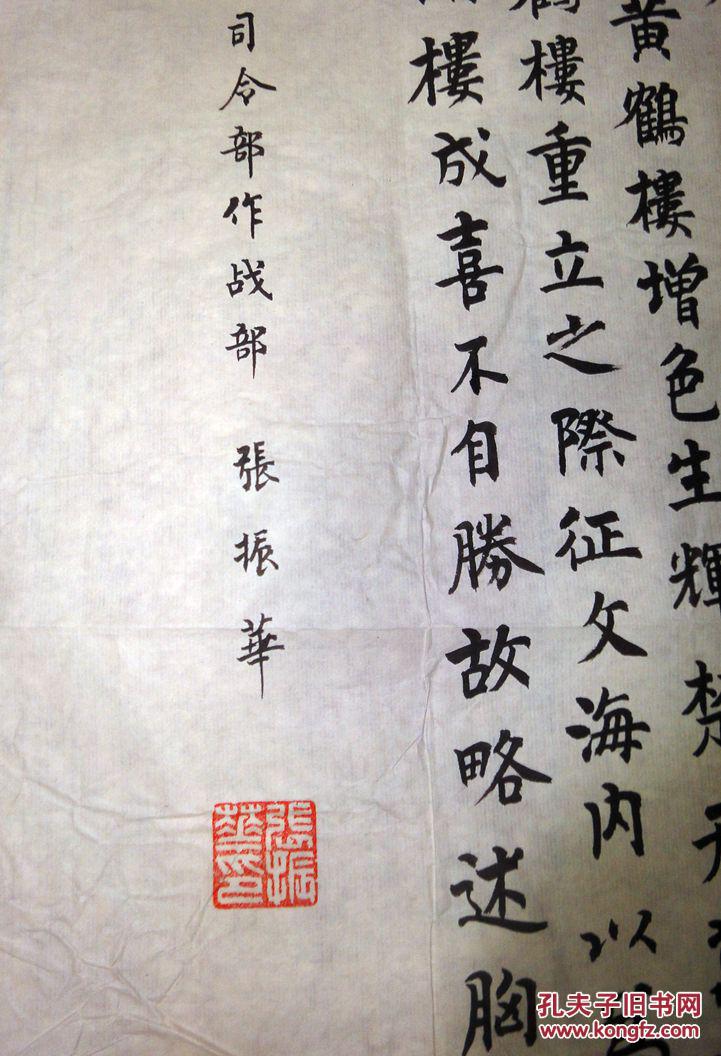 黄鶴樓增色生輝
鶴樓重立之際征文海内以
樓成喜不自勝故略述胸
司令部作战部 張振華
張振華印
孔夫子旧书网
www.kongfz.com